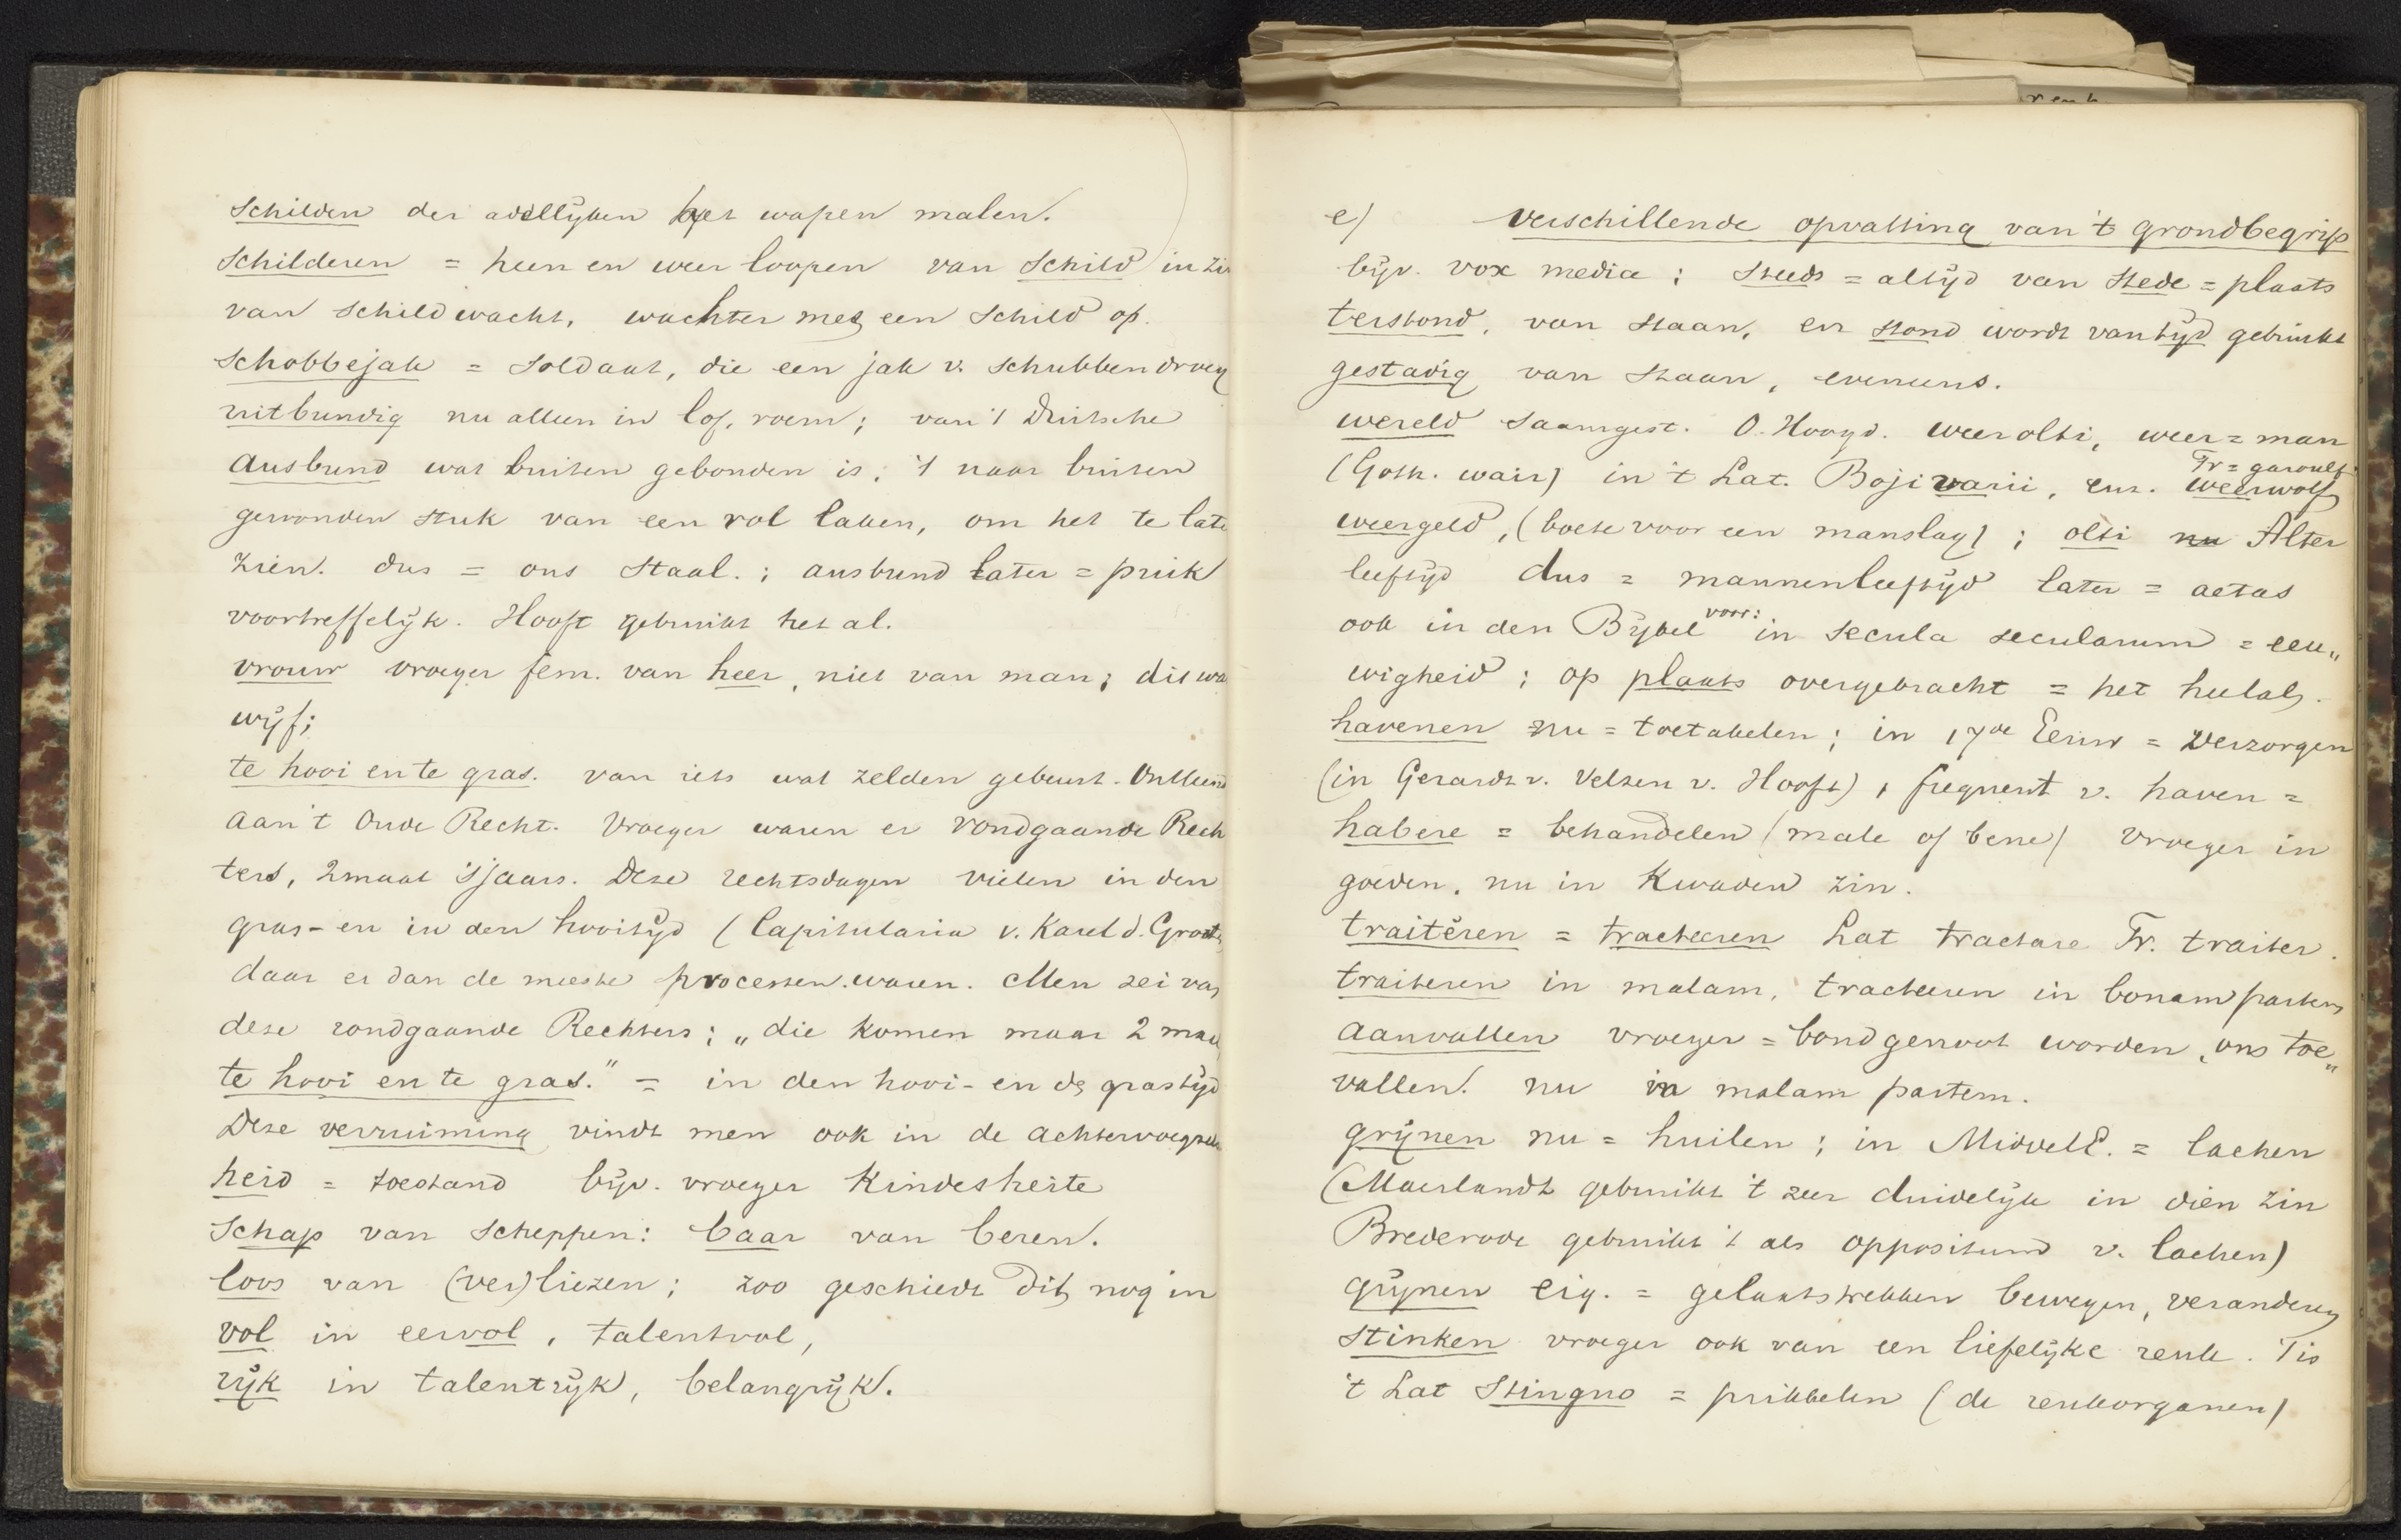 schilden der adellijken het wapen malen.
schilderen = heen en weer loopen van schild in zin
van schildwacht, wachter met een schild op.
schobbejak = soldaat, die een jak v. schubben droeg
uitbundig nu alleen in lof, roem; van 't Duitsche
Ausbund wat buiten gebonden is; 't naar buiten
gewonden stuk van een rol laken, om het te late
zien. dus = ons staal.; ausbund later = puik
voortreffelijk. Hooft gebruikt het al.
vrouw vroeger fem. van heer, niet van man; dit wa
wijf;
te hooi en te gras. van iets wat zelden gebeurt. Ontleend
aan 't Oude Recht. Vroeger waren er rondgaande Rech
ters, 2maal 'sjaars. Deze rechtsdagen vielen in den
gras- en in den hooitijd (Capitularia v. Karel d. Groote
daar er dan de meeste processen waren. Men zei van
deze rondgaande Rechters; „die komen maar 2 maal
te hooi en te gras." = in den hooi- en de grastijd
Deze verruiming vindt men ook in de achtervoegsels
heid = toestand bijv. vroeger Kindesheite
schap van scheppen: baar van beren.
loos van (ver)liezen; zoo geschiedt dit nog in
vol in eervol, talentvol,
rijk in talentrijk, belangrijk.
e) Verschillende opvatting van 't grondbegrip
bijv. vox media; steeds = altijd van stede = plaats
terstond, van staan, en stond wordt van tijd gebruikt
gestadig van staan, eveneens.
wereld saamgest. O. Hoogd. weerolti, weer = man
Fr = garoulf
(Goth. wair) in 't Lat. Bojivarii, enz. weerwolf
weergeld, (boete voor een manslag); olti nu Alter
leeftijd dus = mannenleeftijd later = aetas
ook in den Bijbel voor: in secula secularum = eeu„
wigheid; op plaats overgebracht = het heelal.
havenen nu = toetakelen; in 17de Eeuw = verzorgen
(in Gerardt v. Velzen v. Hooft), frequent v. haven =
habere = behandelen (male of bene) vroeger in
goeden, nu in kwaden zin.
traitēren = tracteeren Lat tractare Fr. traiter.
traiteren in malam, tracteeren in bonam partem
aanvallen vroeger = bondgenoot worden, ons toe„
vallen. nu in malam partem.
grijnen nu = huilen; in MiddelE. = lachen
(Maerlandt gebruikt 't zeer duidelijk in dien zin
Brederode gebruikt 't als oppositum v. lachen)
grijnen eig. = gelaatstrekken bewegen, veranderen
stinken vroeger ook van een liefelijke reuk. Tis
't Lat Stinguo = prikkelen (de reukorganen)